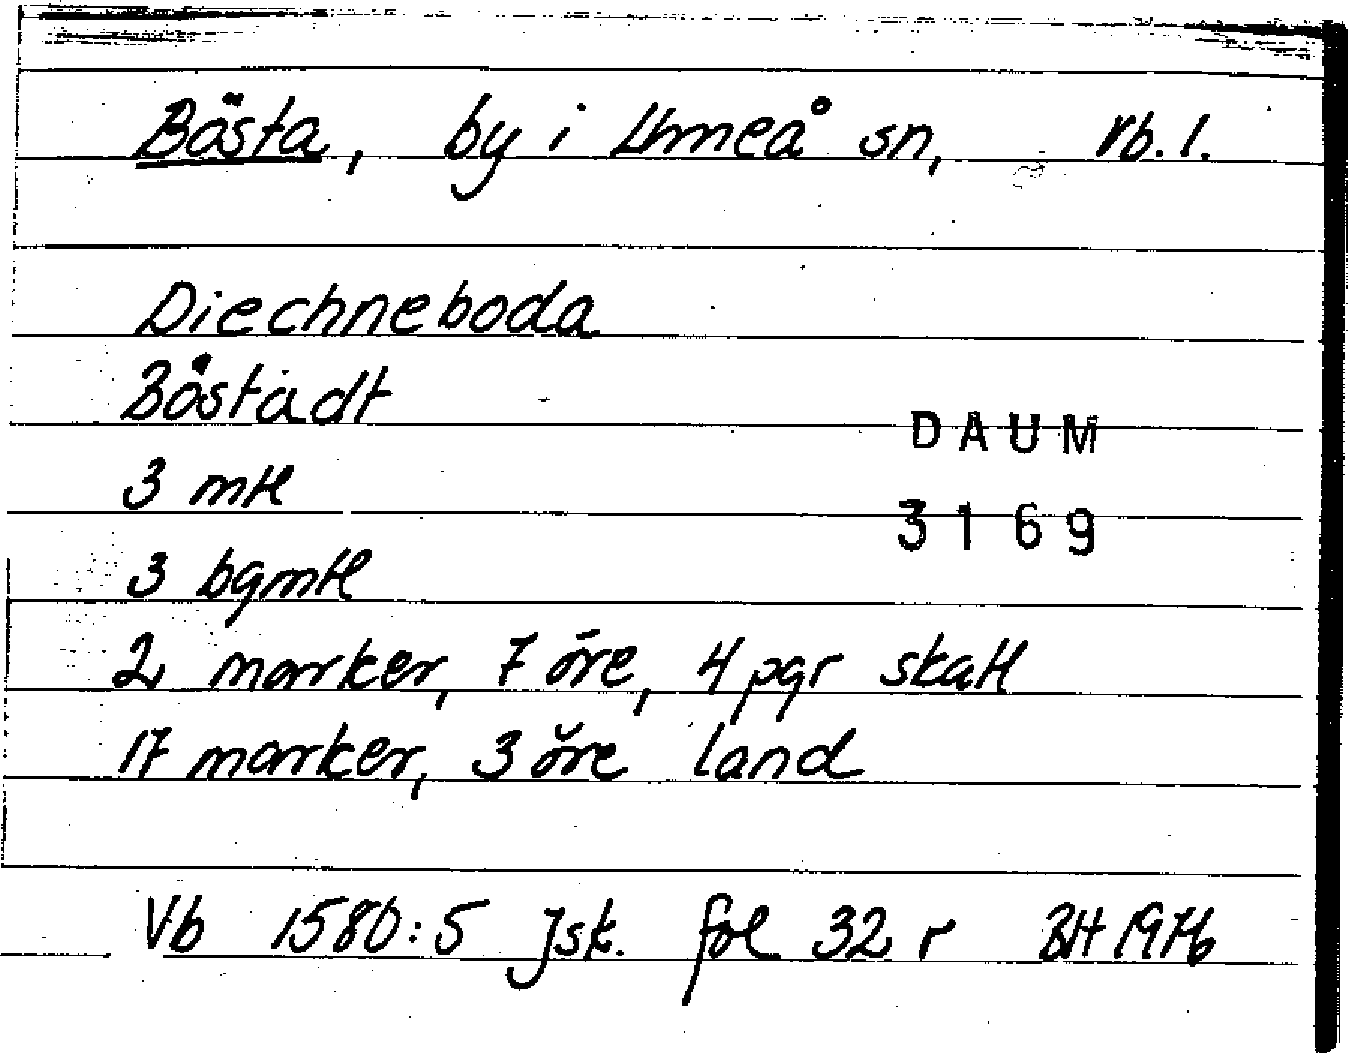 Bösta, by i Umeå sn, Vb. l.
Diechneboda
Böstadt
DAUM
3 mtl
3169
3 bgmtl
2 marker, 7 öre, 4 pgr skatt
17 marker, 3 öre land
Vb 1580:5 Jsk. fol 32 r BH 1976